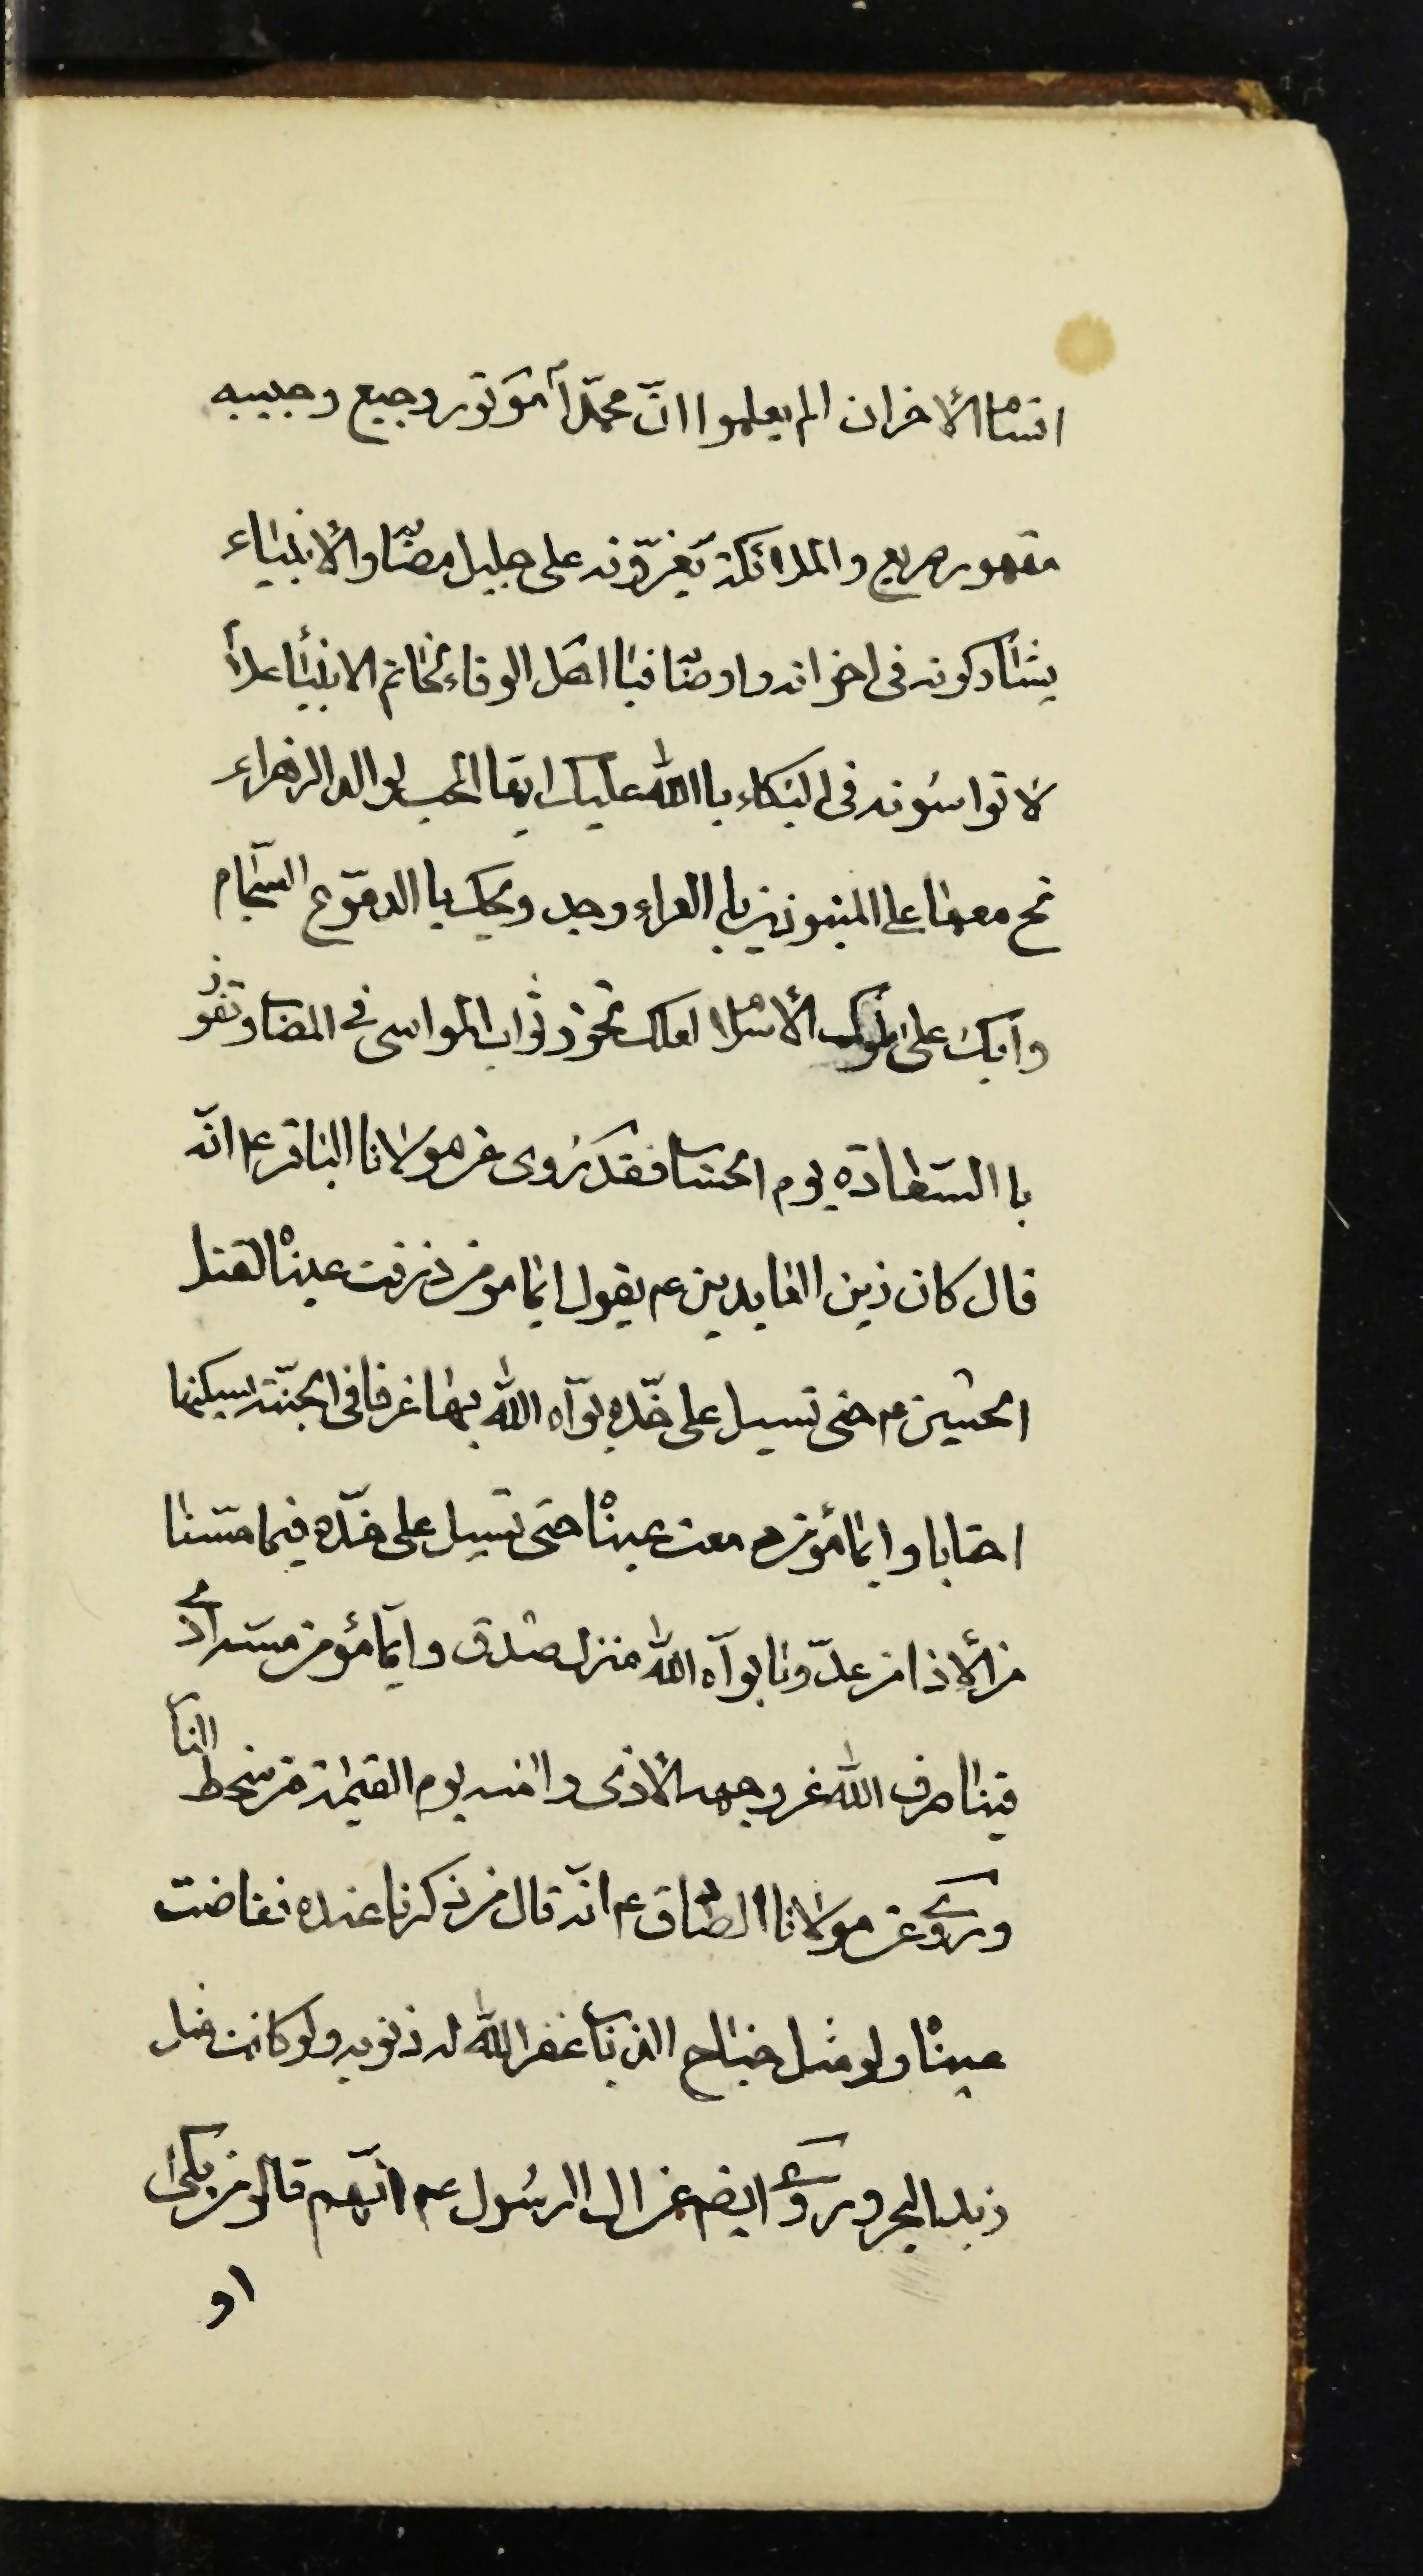 انسام الأحزان الم يعلموا انّ محمّداً موتور وجيع وحبيبه
مقهور صريع والملائكة يعزّونه على جليل مصابه والأنبياء
يشاركونه في احزانه واوصابه فيا اهل الوفاء بخاتم الانبياء علام
لا تواسونه في البكاء با الله عليك ايها المحب لوالد الزهراء
نح معها على المنبوذين با العراء وجد ويحك با الدموع السجام
وابك على ملوك الأسلام لعلك تحوز ثواب المواسي في المصاب وتفوز
با السعادة يوم الحساب فقد روى عن مولانا الباقر ع انّه
قال كان زين العابدين ع يقول ايما مومن ذرفت عيناه لقتل
الحسين ع حتى تسيل على خدّه بوّأه الله بها غرفا في الجنّة يسكنها
احقابا وايما مؤمن دمعت عيناه حتى تسيل على خدّه فيما مسنا
من الأذا من عدّونا بوأه الله منزل صدق وايما مؤمن مسه اذى
فينا صرف الله عن وجهه الأذى وامنه يوم القيمة من سخط النار
وروى عن مولانا الصادق ع انّه قال من ذكرنا عنده ففاضت
عيناه ولو مثل جناح الذباب غفر الله له ذنوبه ولو كانت مثل
زبد البحر وروى ايضا عن ال الرسول ع انّهم قالو من بكى
او